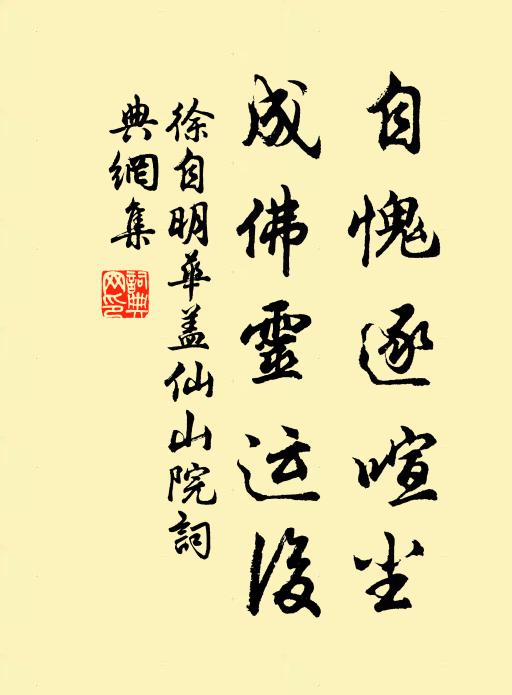 自愧逐喧尘
成佛靈运後
徐自明華盖仙山院詞
典網集
詞典网印